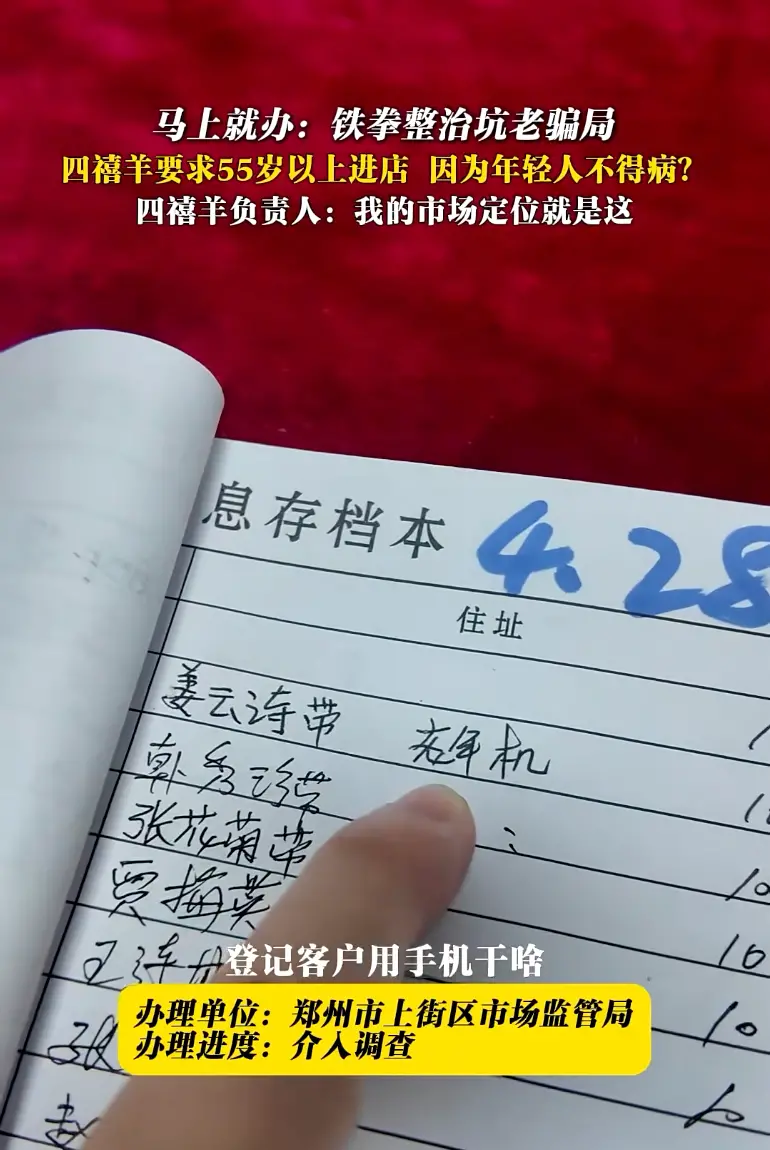 马上就办：铁拳整治坑老骗局
四禧羊要求55岁以上进店 因为年轻人不得病？
四禧羊负责人：我的市场定位就是这
息存档本 4.28
住址
姜云诗带 老年机
张花菊带
登记客户用手机干啥
办理单位：郑州市上街区市场监管局
办理进度：介入调查